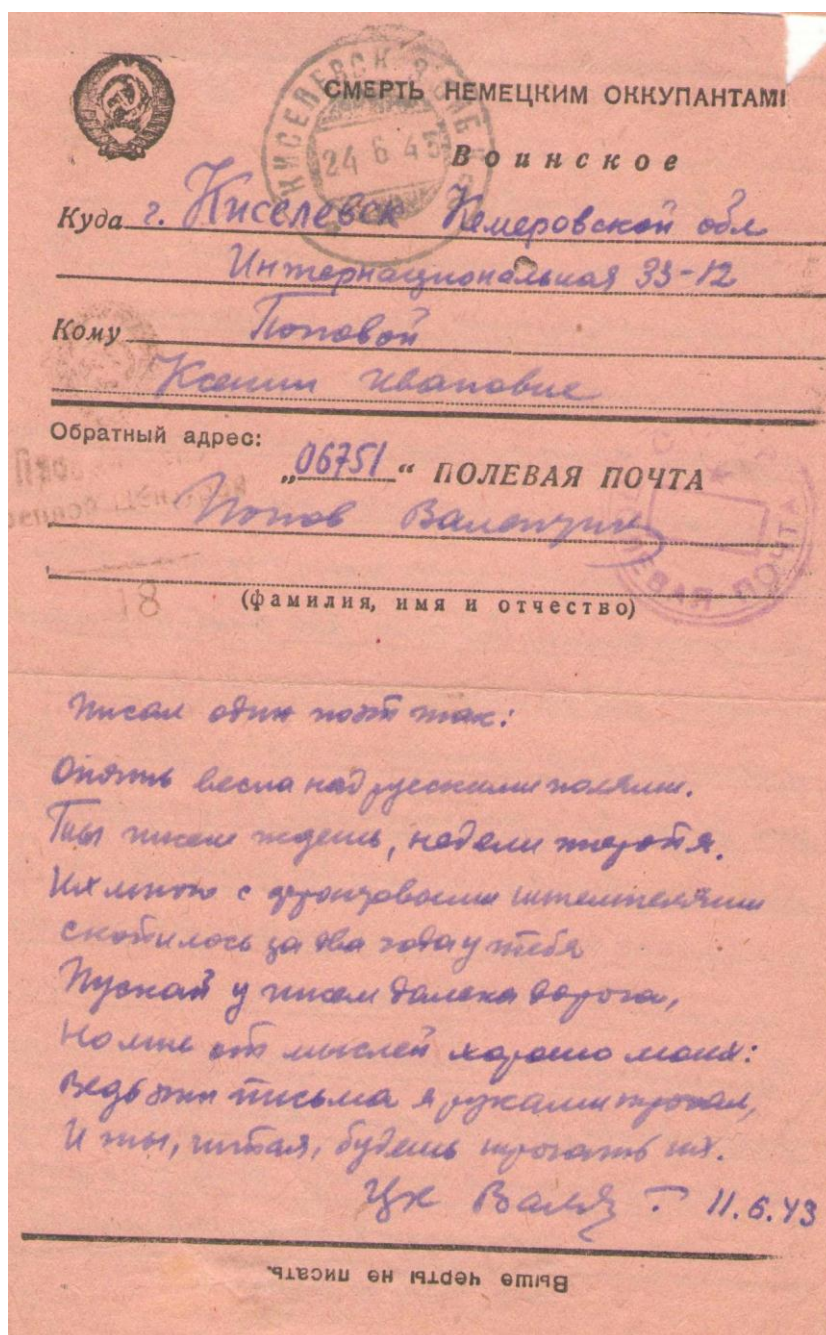 СМЕРТЬ НЕМЕЦКИМ ОККУПАНТАМ!
КИСЕЛЕВСК
24 6 43
Воинское
Куда г. Киселевск Кемеровской обл
Интернациональная 33-12
Кому Поповой
Ксении Ивановне
Обратный адрес:
„06751“ ПОЛЕВАЯ ПОЧТА
Попов Валентин
ПОЧТА
18
(фамилия, имя и отчество)
Писал один поэт так:
Опять весна над русскими полями.
Ты писем ждешь, недели торопя.
Их много с фронтовыми штемпелями
скопилось за два года у тебя
Пускай у писем далека дорога,
Но мне от мыслей хорошо моих:
Ведь эти письма я руками трогал,
И ты, читая, будешь трогать их.
Цк Валя 11.6.43
Выше черты не писать.